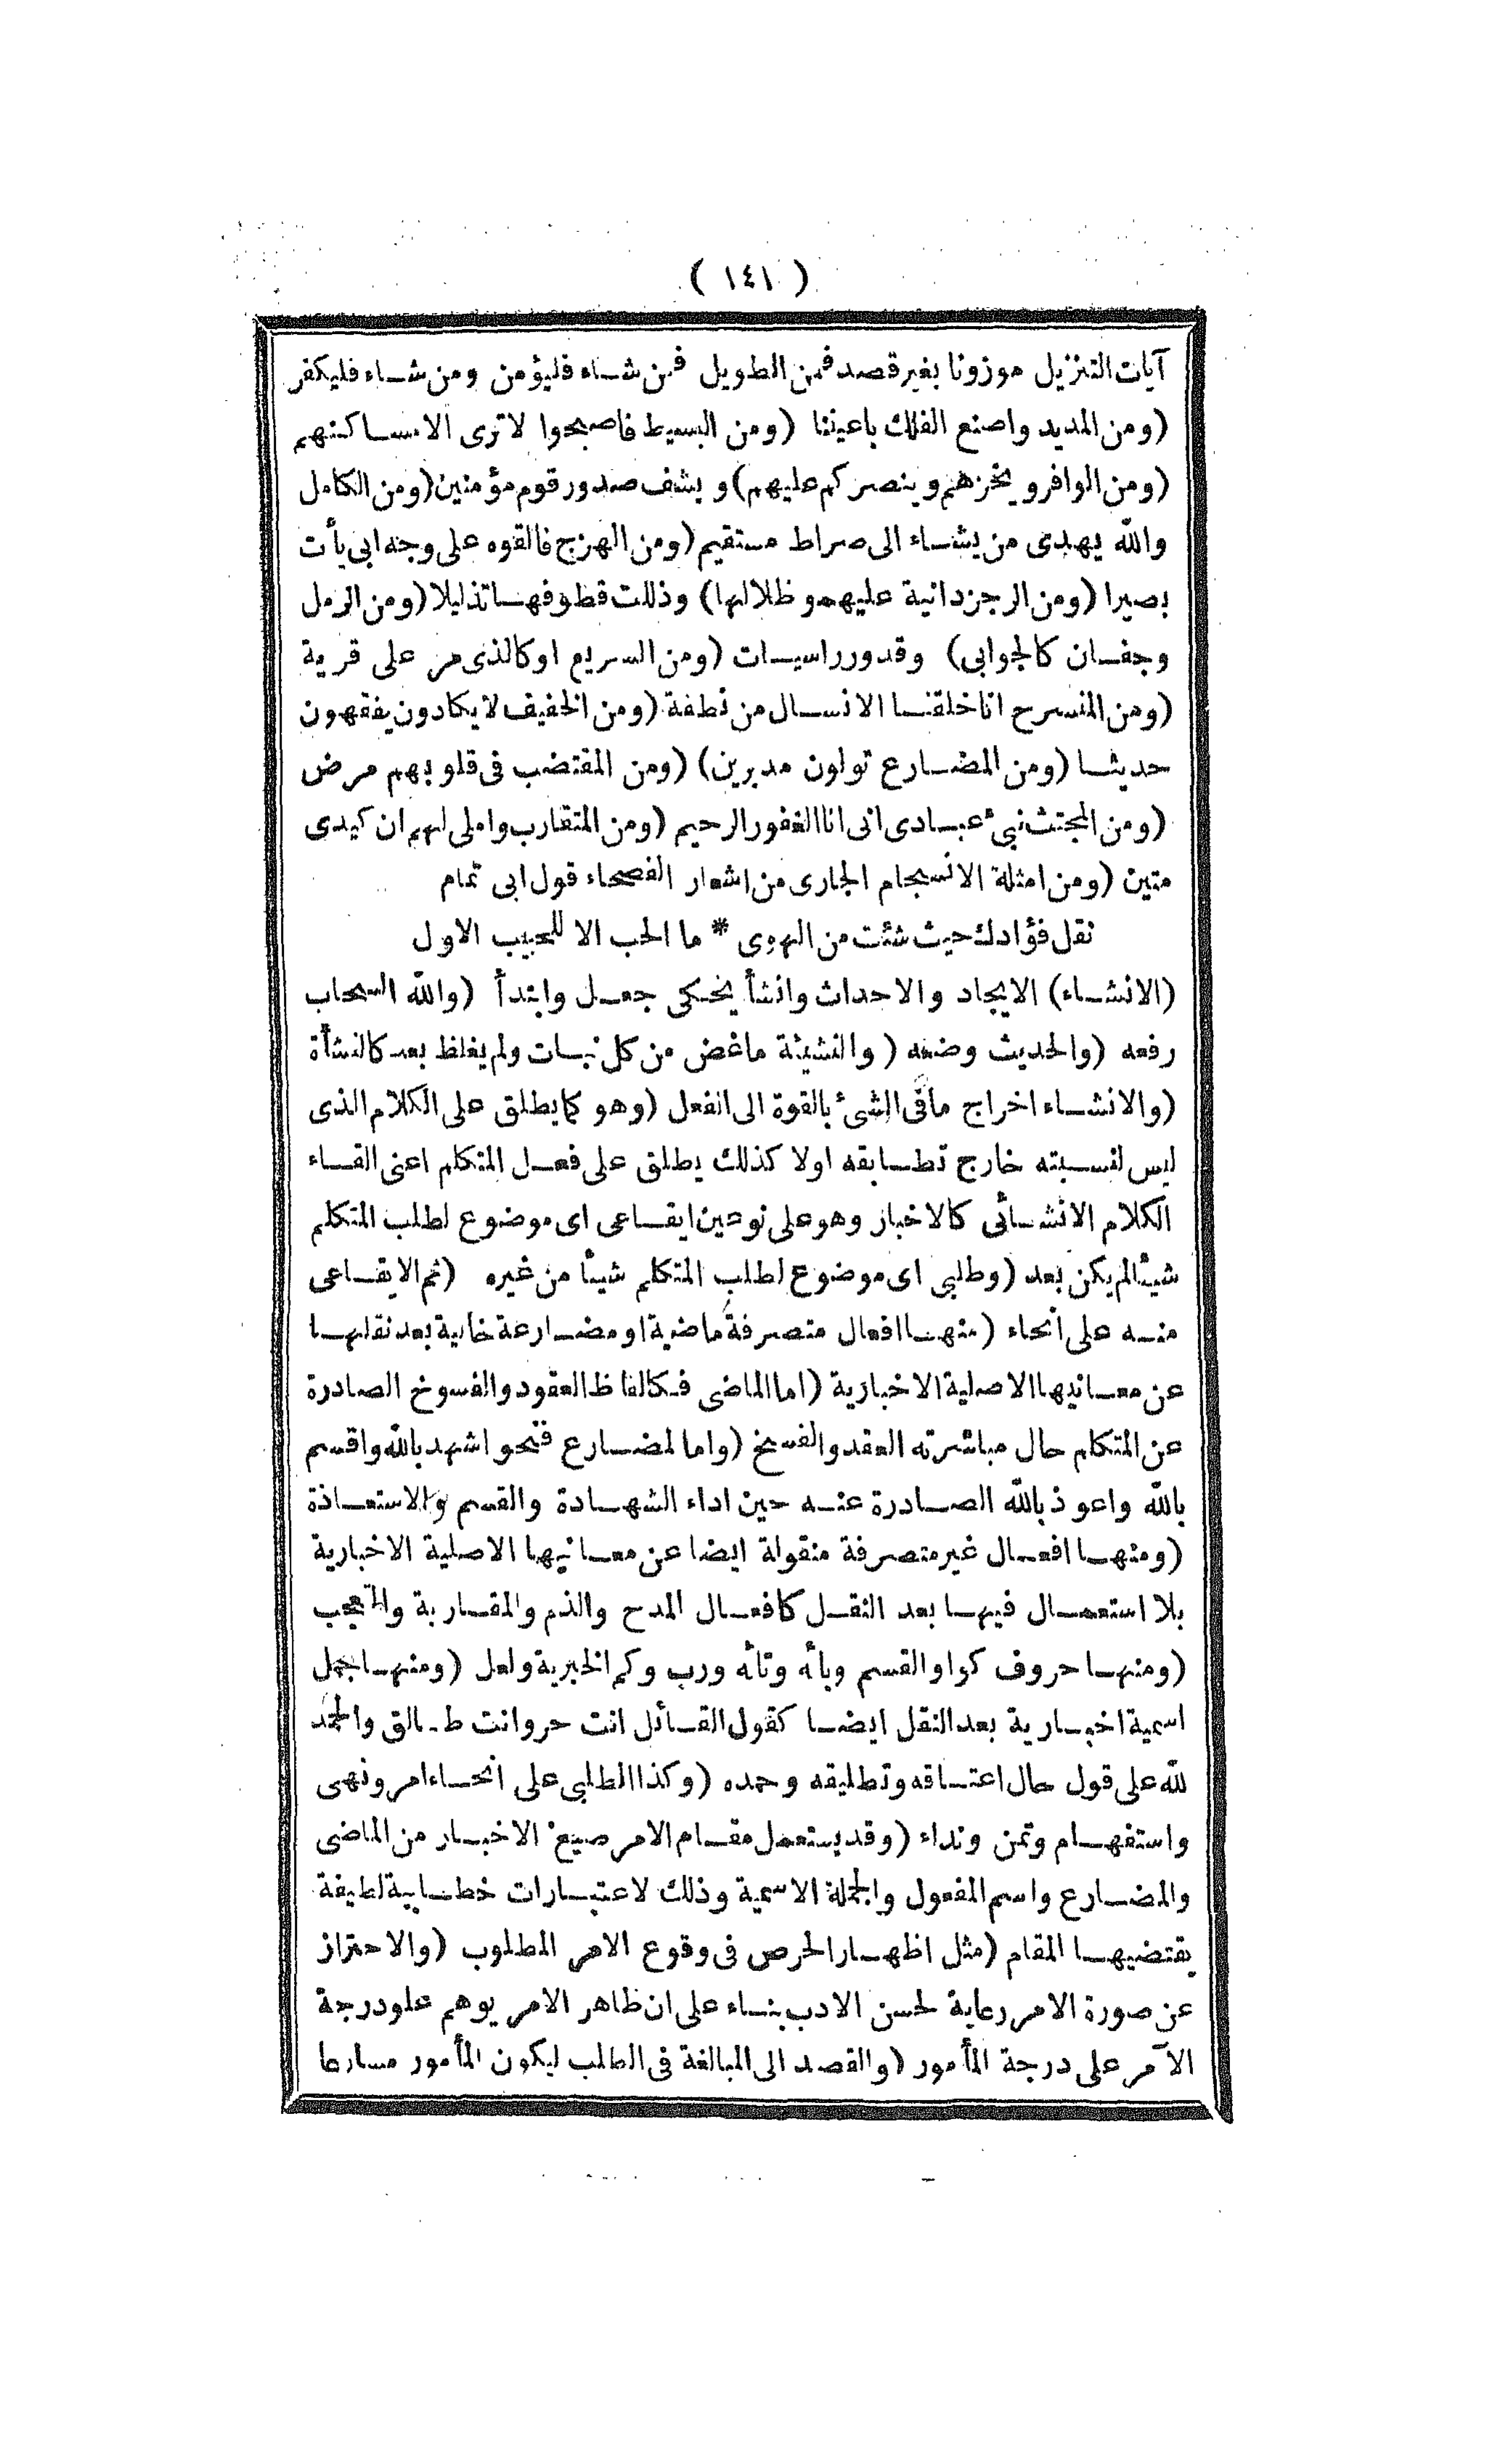 ( ١٤١ )
آيات التنزيل موزونا بغير قصد فمن الطويل فمن شاء فليؤمن ومن شاء فليكفر
(ومن المديد واصنع الفلك باعيننا (ومن البسيط فاصبحوا لا ترى الا مساكنهم
(ومن الوافر ويخزهم وينصركم عليهم) ويشف صدور قوم مؤمنين (ومن الكامل
والله يهدى من يشاء الى صراط مستقيم (ومن الهزج فالقوه على وجه ابى يأت
بصيرا (ومن الرجز دانية عليهمو ظلالها) وذللت قطوفها تذليلا (ومن الرمل
وجفان كالجوابى) وقدور راسيات (ومن السريع او كالذى مر على قرية
(ومن المنسرح انا خلقنا الانسان من نطفة (ومن الخفيف لا يكادون يفقهون
حديثا (ومن المضارع تولون مدبرين) (ومن المقتضب فى قلوبهم مرض
(ومن المجتث نبئ عبادى انى انا الغفور الرحيم (ومن المتقارب واملى لهم ان كيدى
متين (ومن امثلة الانسجام الجارى من اشعار الفصحاء قول ابى تمام
نقل فؤادك حيث شئت من الهوى * ما الحب الا للحبيب الاول
(الانشاء) الايجاد والاحداث وانشأ يحكى جعل وابتدأ (والله السحاب
رفعه (والحديث وضعه (والنشيئة ماغض من كل نبات ولم يغلظ بعد كالنشأة
(والانشاء اخراج ما فى الشئ بالقوة الى الفعل (وهو كما يطلق على الكلام الذى
ليس لنسبته خارج تطابقه اولا كذلك يطلق على فعل المتكلم اعنى القاء
الكلام الانشائى كالاخبار وهو على نوعين ايقاعى اى موضوع لطلب المتكلم
شيئا لم يكن بعد (وطلبى اى موضوع لطلب المتكلم شيئا من غيره (ثم الايقاعى
منه على أنحاء (منها افعال متصرفة ماضية او مضارعة خالية بعد نقلها
عن معانيها الاصلية الاخبارية (اما الماضى فكالفاظ العقود والفسوخ الصادرة
عن المتكلم حال مباشرته العقد والفسخ (واما لمضارع فنحو اشهد بالله واقسم
بالله واعوذ بالله الصادرة عنه حين اداء الشهادة والقسم والاستعاذة
(ومنها افعال غير متصرفة منقولة ايضا عن معانيها الاصلية الاخبارية
بلا استعمال فيها بعد النقل كافعال المدح والذم والمقاربة والتعجب
(ومنها حروف كواو القسم وبائه وتائه ورب وكم الخبرية ولعل (ومنها جمل
اسمية اخبارية بعد النقل ايضا كقول القائل انت حر وانت طالق والحمد
لله على قول حال اعتاقه وتطليقه وحمده (وكذا الطلبى على انحاء امر ونهى
واستفهام وتمن ونداء (وقد يستعمل مقام الامر صيغ الاخبار من الماضى
والمضارع واسم المفعول والجملة الاسمية وذلك لاعتبارات خطابية لطيفة
يقتضيها المقام (مثل اظهار الحرص فى وقوع الامر المطلوب (والاحتراز
عن صورة الامر رعاية لحسن الادب بناء على ان ظاهر الامر يوهم علو درجة
الآمر على درجة المأمور (والقصد الى المبالغة فى الطلب ليكون المأمور مسارعا